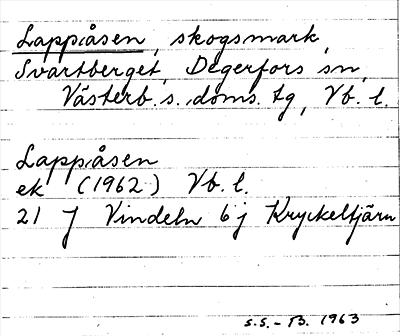 Lappåsen, skogsmark,
Svartberget, Degerfors sn,
Västerb. s. doms. tg, Vb. l.
Lappåsen
ek (1962) Vb. l.
21 J Vindeln 6 j Kryckeltjärn
S.S. - B. 1963